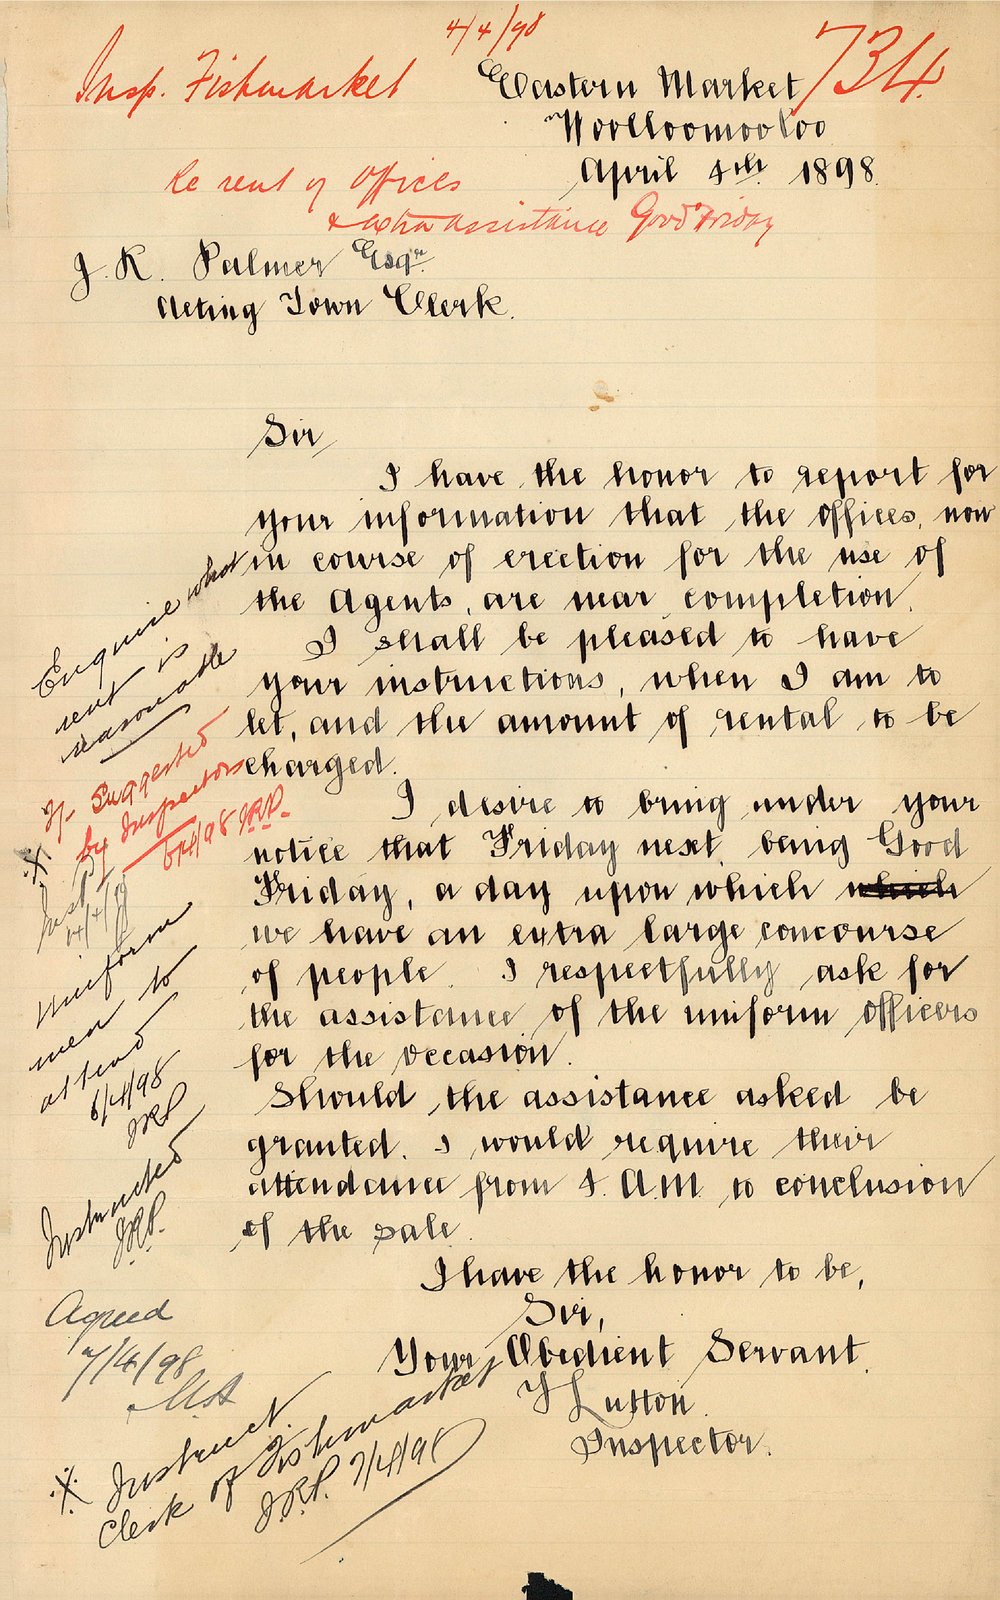 4/4/98
734
Insp. Fishmarket
Eastern Market
Woolloomooloo
April 4th 1898.
Re rent of Offices
& extra assistance Good Friday
J. R. Palmer Esqre.
Acting Town Clerk.
Sir,
I have the honor to report for
your information that the Offices, now
in course of erection for the use of
the Agents, are near completion.
I shall be pleased to have
your instructions, when I am to
let, and the amount of rental to be
charged.
I desire to bring under your
notice that Friday next, being Good
Friday, a day upon which which
we have an extra large concourse
of people. I respectfully ask for
the assistance of the uniform officers
for the occasion.
Should the assistance asked be
granted. I would require their
attendance from 4. A.M. to conclusion
of the sale.
I have the honor to be,
Sir,
Your Obedient Servant.
Inspector.
Enquire what
rent is
reasonable
Suggested
by Inspectors
5/4/98 JRP.
Uniform
men to
attend
6/4/98
JRP
Instructed
JRP.
Agreed
7/4/98
Instruct
Clerk of Fishmarket
J.R.P. 7/4/98